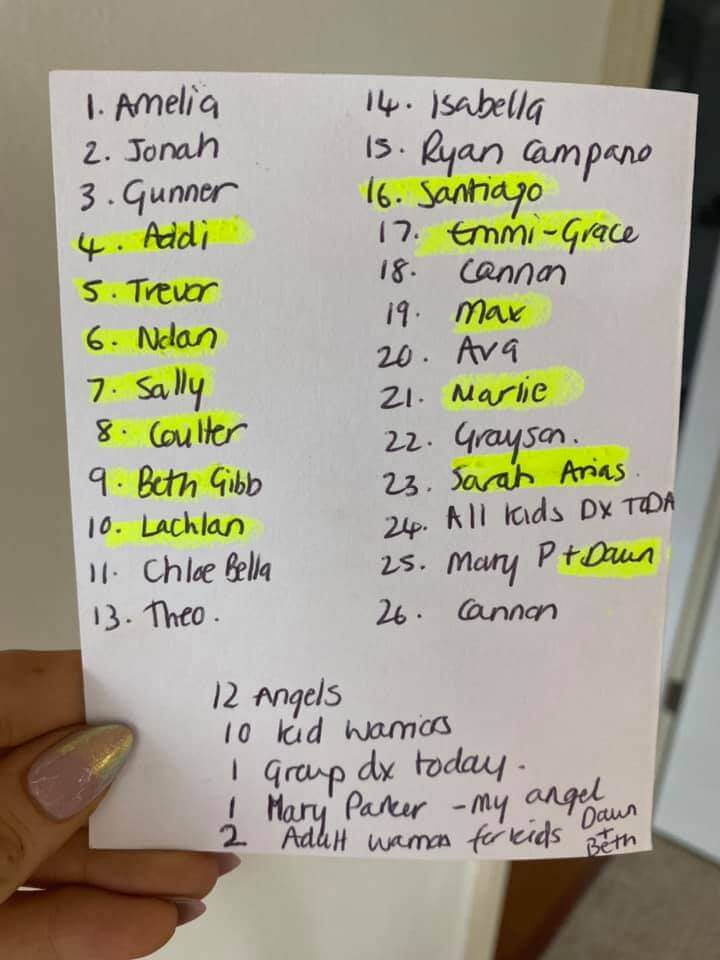 1. Amelia
2. Jonah
3. Gunner
4. Addi
5. Trevor
6. Nolan
7. Sally
8. Coulter
9. Beth Gibb
10. Lachlan
11. Chloe Bella
13. Theo.
14. Isabella
15. Ryan Campano
16. Santiago
17. Emmi-Grace
18. Cannon
19. Max
20. Ava
21. Marlie
22. Grayson.
23. Sarah Arias.
24. All kids DX TODA
25. Mary P + Dawn
26. Cannon
12 Angels
10 kid warriors
1 Group dx today.
1 Mary Parker - my angel
2 Adult warriors for kids Dawn + Beth